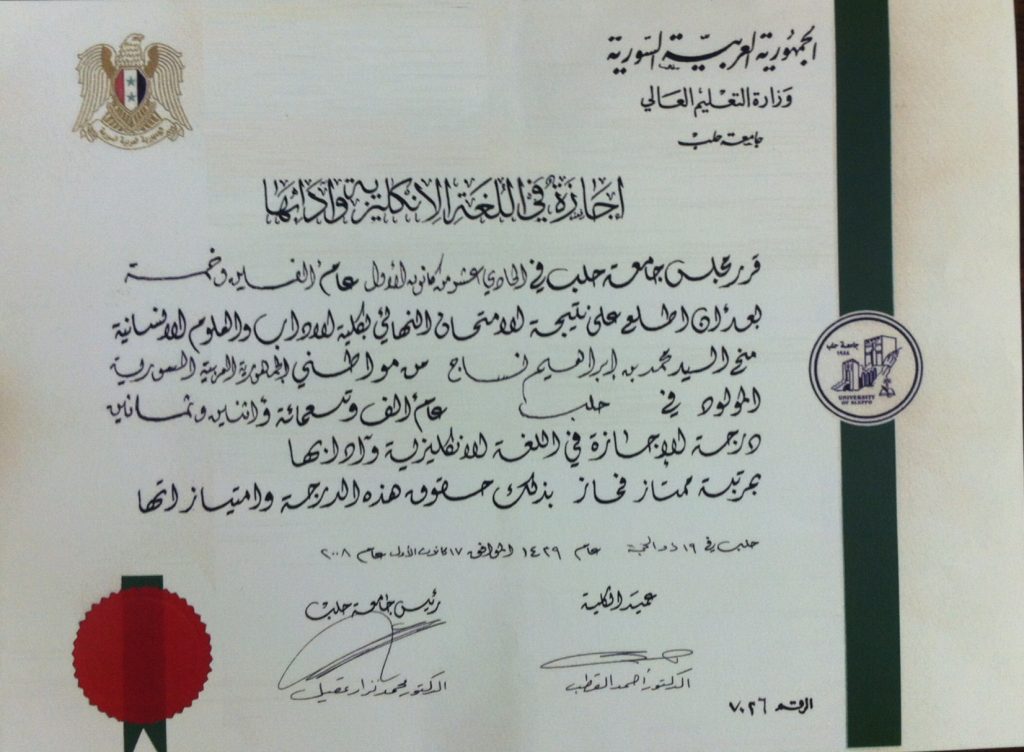 الجمهورية العربية السورية
وزارة التعليم العالي
جامعة حلب
الجمهورية العربية السورية
اجازة في اللغة الانكليزية وآدابها
قرر مجلس جامعة حلب في الحادي عشر من كانون الأول عام ألفين وخمسة
بعد أن اطلع على نتيجة الامتحان النهائي بكلية الآداب والعلوم الانسانية
منح السيد محمد بن ابراهيم نساج من مواطني الجمهورية العربية السورية
المولود في حلب عام الف وتسعمائة واثنين وثمانين
درجة الإجازة في اللغة الانكليزية وآدابها
بمرتبة ممتاز فحاز بذلك حقوق هذه الدرجة وامتيازاتها
جامعة حلب
UNIVERSITY
OF ALEPPO
حلب في ١٩ ذو الحجة عام ١٤٢٩ الموافق ١٧ كانون الأول عام ٢٠٠٨
عميد الكلية
رئيس جامعة حلب
الدكتور أحمد القطب
الدكتور محمد نزار عقيل
الرقم ٧٠٢٦